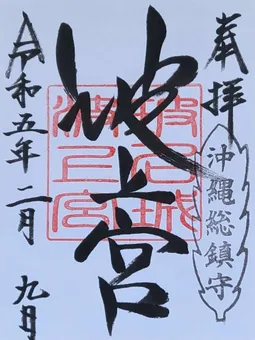 奉拝
沖縄総鎮守
波上宮
波上宮
令和五年二月
九日